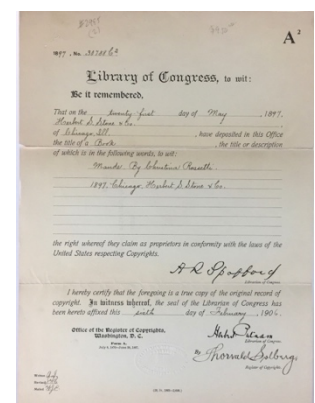 A²
1897, No. 30728 C2
Library of Congress, to wit:
Be it remembered,
That on the twenty-first day of May, 1897,
Herbert S. Stone & Co.
of Chicago, Ill., have deposited in this Office
the title of a Book, the title or description
of which is in the following words, to wit:
Maude. By Christina Rossetti.
1897. Chicago. Herbert S. Stone & Co.
the right whereof they claim as proprietors in conformity with the laws of the
United States respecting Copyrights.
A R Spofford
Librarian of Congress.
I hereby certify that the foregoing is a true copy of the original record of
copyright. In witness whereof, the seal of the Librarian of Congress has
been hereto affixed this sixth day of February, 1906.
Office of the Register of Copyrights,
Washington, D. C.
Herbert Putnam
Librarian of Congress.
By Thorvald Solberg
Register of Copyrights.